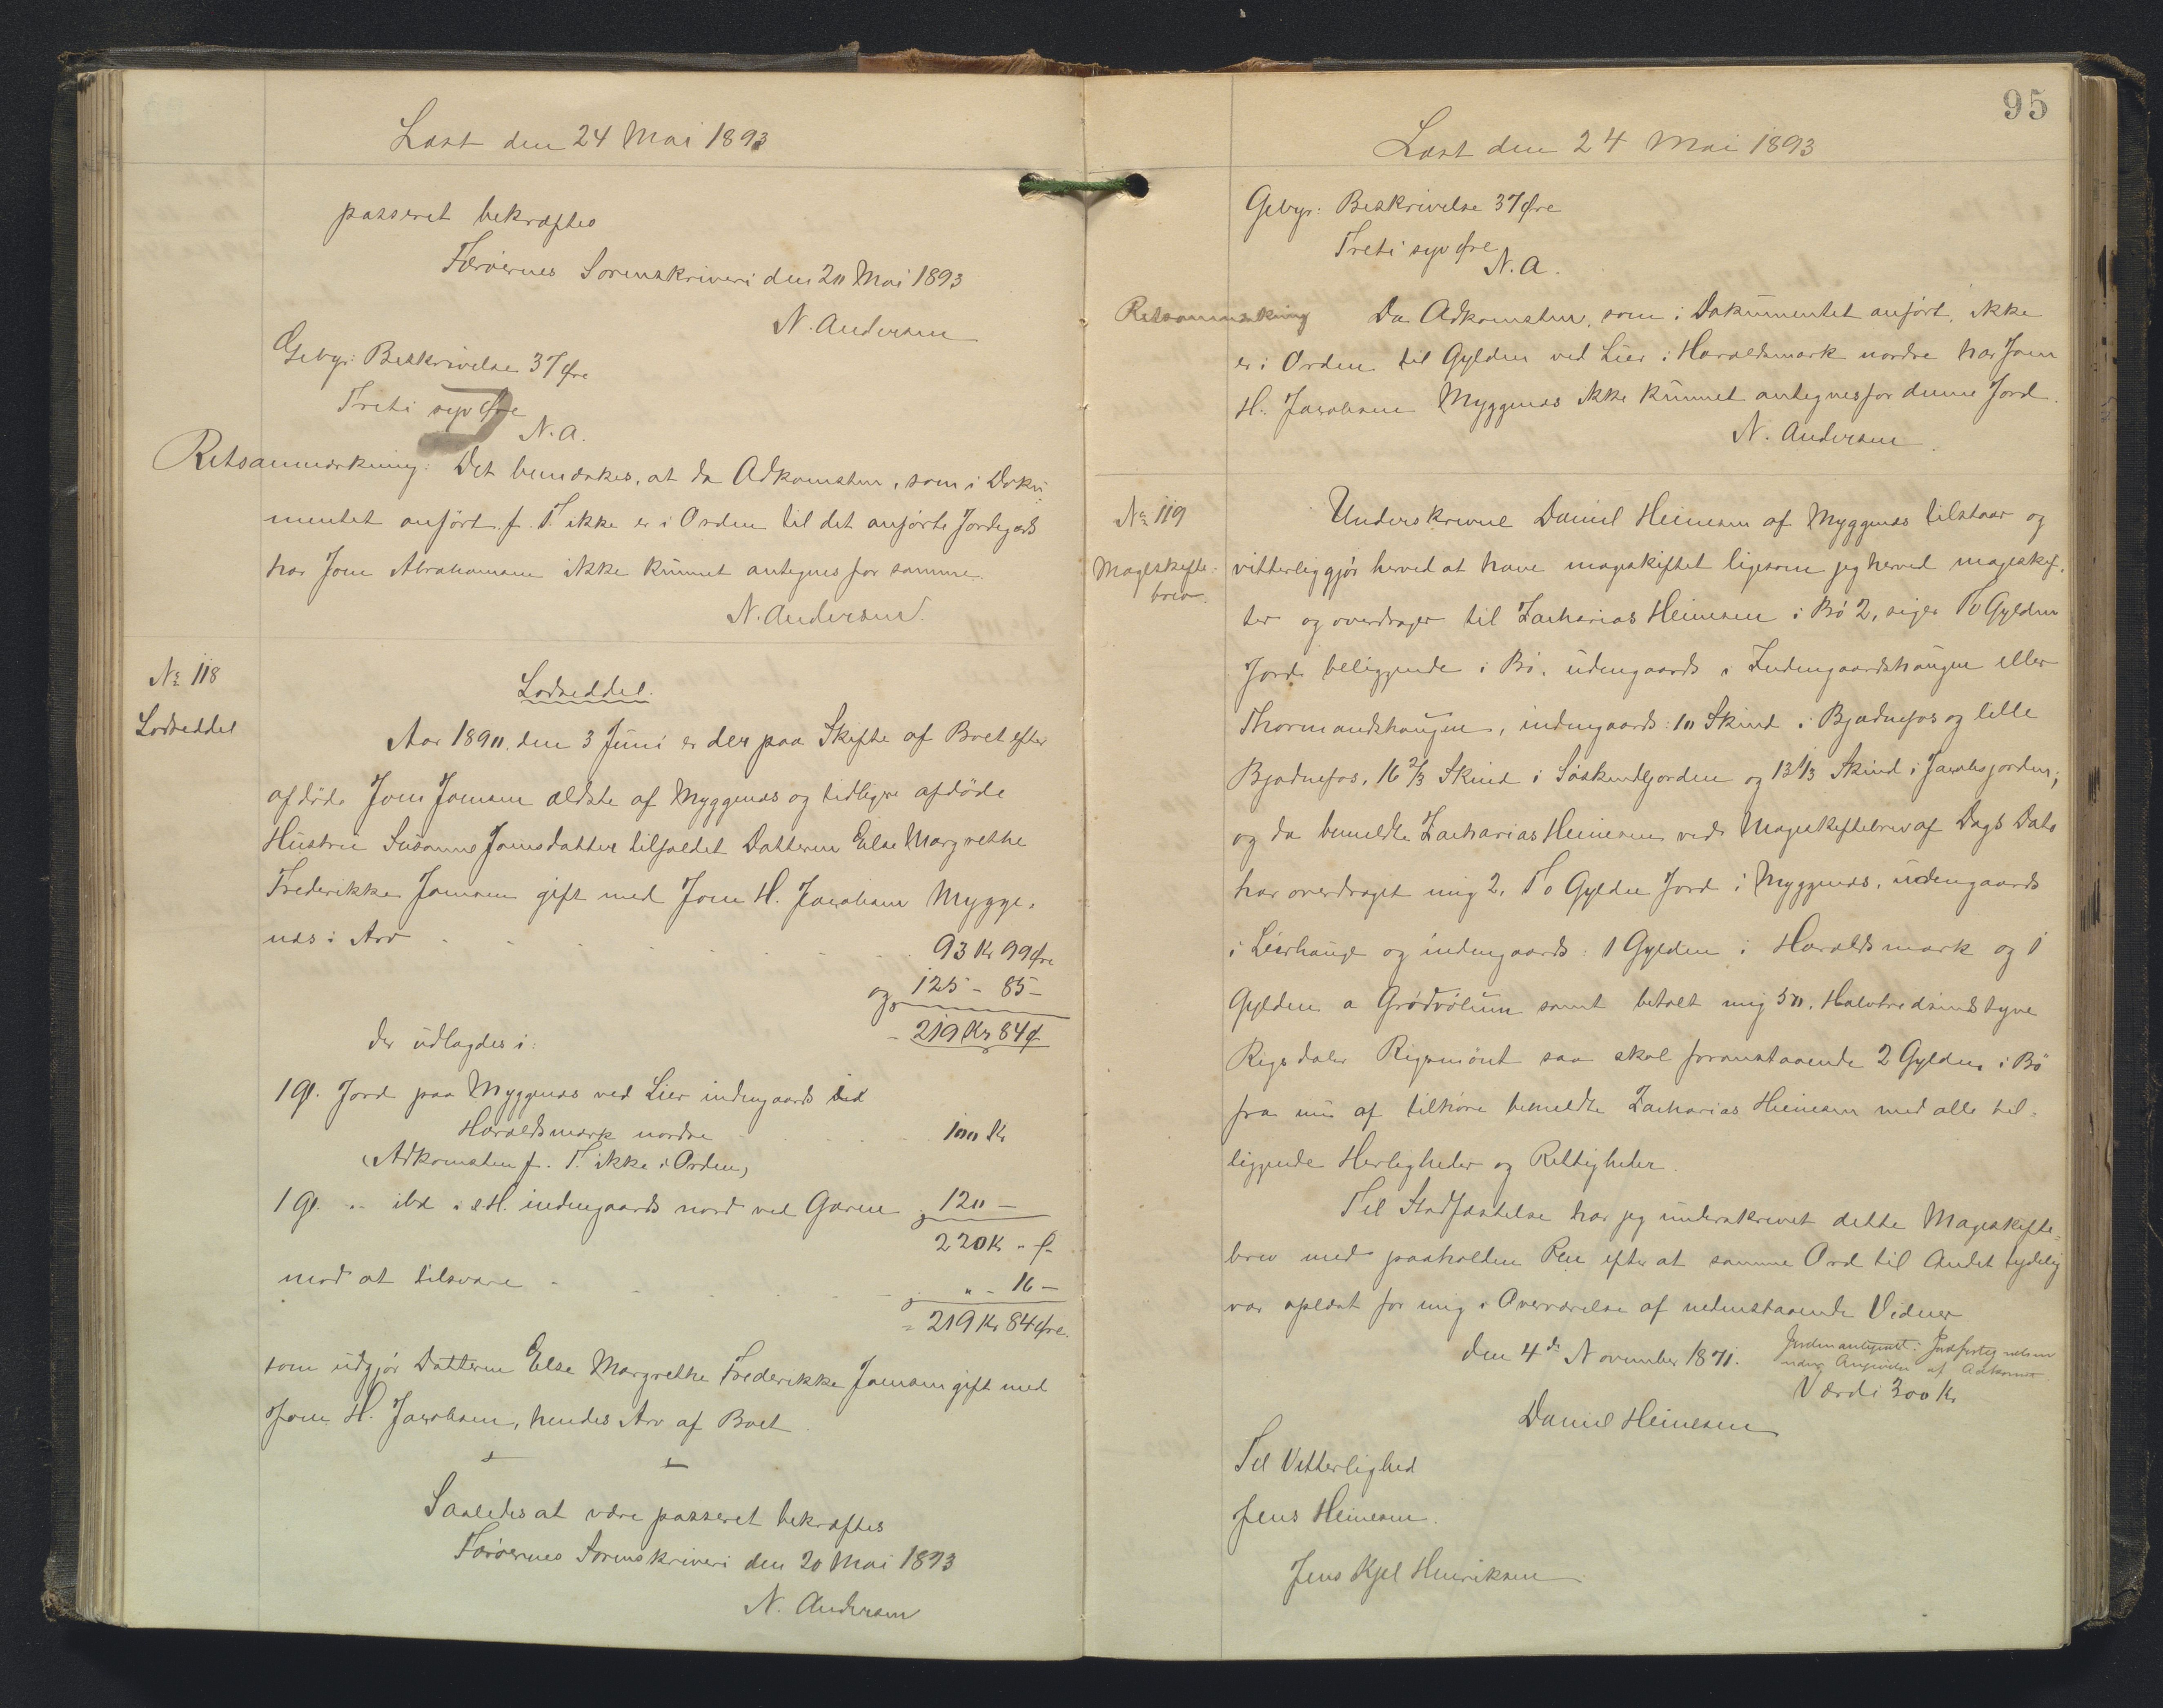 Læst den 24 Mai 1893
passeret bekræftes
Færøernes Sorenskriveri den 20 Mai 1893
N. Andersen
Gebyr: Beskrivelse 37 Øre
Treti syv Øre
N. A.
Retsanmærkning: Det bemærkes, at da Adkomsten, som i Doku-
mentet anført f. T. ikke er i Orden til det anførte Jordegods
har Joen Abrahamsen ikke kunnet antegnes for samme.
N. Andersen
No 118
Lodseddel
Lodseddel.
Aar 1890, den 3 Juni er der paa Skifte af Boet efter
afdøde Joen Joensen ældste af Myggenæs og tidligere afdøde
Hustru Susanne Joensdatter tilfaldet Datteren Else Margrethe
Frederikke Joensen gift med Joen H. Jacobsen Mygge-
næs i Arv 93 Kr 99 Øre
og 125 - 85 -
- 219 Kr 84 Ø
der udlagdes i:
1 Gl. Jord paa Myggenæs ved Lier indengaards ved
Haraldsmark nordre 100 Kr
(Adkomsten f. T. ikke i Orden)
1 Gl. " ibd i s H. indengaards nord ved Garen 120 -
220 Kr " Ø
mod at tilsvare " - 16 -
= 219 Kr 84 Øre.
som udgjør Datteren Else Margrethe Frederikke Joensen gift med
Joen H. Jacobsen, hendes Arv af Boet
Saaledes at være passeret bekræftes
Færøernes Sorenskriveri den 20 Mai 1893
N. Andersen
95
Læst den 24 Mai 1893
Gebyr: Beskrivelse 37 Øre
Treti syv Øre
N. A.
Retsanmærkning Da Adkomsten, som i Dokumentet anført, ikke
er i Orden til Gylden ved Lier i Haraldsmark nordre har Joen
H. Jacobsen Myggenæs ikke kunnet antegnes for denne Jord.
N. Andersen
No 119
Mageskifte-
brev.
Underskrevne Daniel Heinesen af Myggenæs tilstaar og
vitterliggjør herved at have mageskiftet ligesom jeg herved mageskif-
ter og overdrager til Zacharias Heinesen i Bø 2, siger To Gylden
Jord beliggende i Bø, udengaards i Indengaardshaugen eller
Thormandshaugen, indengaards: 10 Skind i Bjadnefos og lille
Bjadnefos, 16 2/3 Skind i Søskendjorden og 13 1/3 Skind i Jacobsjorden;
og da bemeldte Zacharias Heinesen ved Mageskiftebrev af Dags Dato
har overdraget mig 2, To Gylden Jord i Myggenæs, udengaards
i Lierhauge og indengaards: 1 Gylden i Haraldsmark og 1
Gylden a Grødvølum samt betalt mig 50, Halvtredsindstyve
Rigsdaler Rigsmønt saa skal foranstaaende 2 Gylden i Bø
fra nu af tilhøre bemeldte Zacharias Heinesen med alle til-
liggende Herligheder og Rettigheder.
Til Stadfæstelse har jeg underskrevet dette Mageskifte-
brev med paaholden Pen efter at samme Ord til Andet tydelig
var oplæst for mig i Overværelse af nedenstaaende Vidner
den 4de November 1871.
af Adkomst.
Værdi 300 Kr
Daniel Heinesen
Til Vitterlighed
Jens Heinesen.
Jens Kjel Henriksen